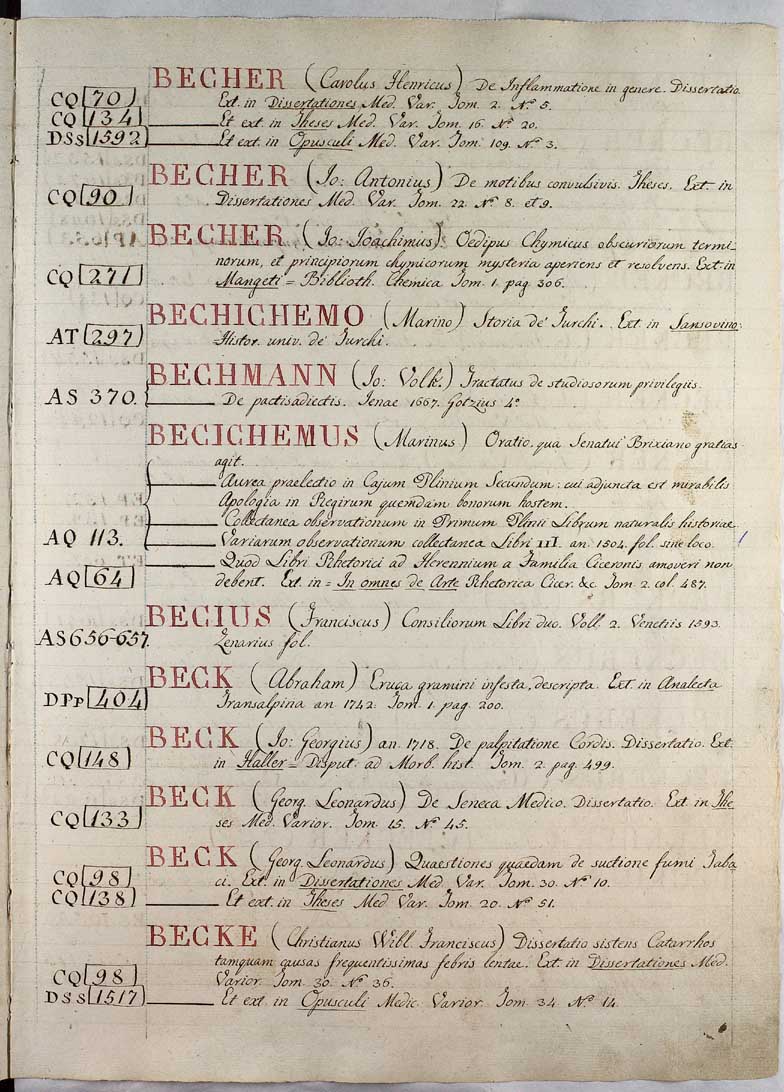 BECHER (Carolus Henricus) De Inflammatione in genere. Dissertatio.
CQ 70 Ext. in Dissertationes Med. Var. Tom. 2. Nº 5.
CQ 134 Et ext. in Theses Med. Var. Tom. 16. Nº 20.
DSs 1592 Et ext. in Opusculi Med. Var. Tom. 109. Nº 3.
BECHER (Jo: Antonius) De motibus convulsivis. Theses. Ext. in
CQ 90 Dissertationes Med. Var. Tom. 22. Nº 8. et 9.
BECHER (Jo: Joachimus) Oedipus Chymicus obscuriorum termi
norum, et principiorum chymicorum mysteria aperiens et resolvens. Ext. in
CQ 271 Mangeti = Biblioth. Chemica Tom. 1. pag. 306.
BECHICHEMO (Marino) Storia de' Turchi. Ext. in Sansovino
AT 297 Histor. univ. de' Turchi.
BECHMANN (Jo: Volk.) Tractatus de studiosorum privilegiis.
AS 370. De pactis adiectis. Jenae 1667. Gotzius 4º
BECICHEMUS (Marinus) Oratio, qua Senatui Brixiano gratias
agit.
Aurea praelectio in Cajum Plinium Secundum: cui adjuncta est mirabilis
Apologia in Regirum quemdam bonorum hostem.
Collectanea observationum in Primum Plinii Librum naturalis historiae
AQ 113. Variarum observationum collectanea Libri III. an. 1504. fol. sine loco.
Quod Libri Rhetorici ad Herennium a Familia Ciceronis amoveri non
AQ 64 debent. Ext. in = In omnes de Arte Rhetorica Cicer. &c Tom 2. col. 487.
BECIUS (Franciscus) Consiliorum Libri duo. Voll. 2. Venetiis 1593.
AS 656-657. Zenarius fol.
BECK (Abraham) Eruca gramini infesta, descripta. Ext. in Analecta
DPp 404 Transalpina an 1742. Tom. 1. pag. 200.
BECK (Jo: Georgius) an. 1718. De palpitatione Cordis. Dissertatio. Ext.
CQ 148 in Haller = Disput. ad Morb. hist. Tom. 2. pag. 499.
BECK (Georg. Leonardus) De Seneca Medico. Dissertatio. Ext. in The
CQ 133 ses Med. Varior. Tom. 15. Nº 45.
BECK (Georg. Leonardus) Quaestiones quaedam de suctione fumi Taba
CQ 98 ci. Ext. in Dissertationes Med. Var. Tom. 30. Nº 10.
CQ 138 Et ext. in Theses Med Var. Tom. 20. Nº 51.
BECKE (Christianus Wibl. Franciscus) Dissertatio sistens Catarrhos
tamquam causas frequentissimas febris lentae. Ext. in Dissertationes Med.
CQ 98 Varior. Tom. 30. Nº 36.
DSs 1517 Et ext. in Opusculi Medic. Varior. Tom 34. Nº 14.